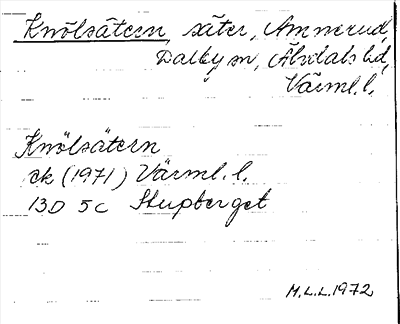 Knölsätern, säter, Ammerud,
Dalby sn, Älvdals hd,
Värml. l.
Knölsätern
ek (1971) Värml. l.
13D 5c Stupberget
M.L.L. 1972